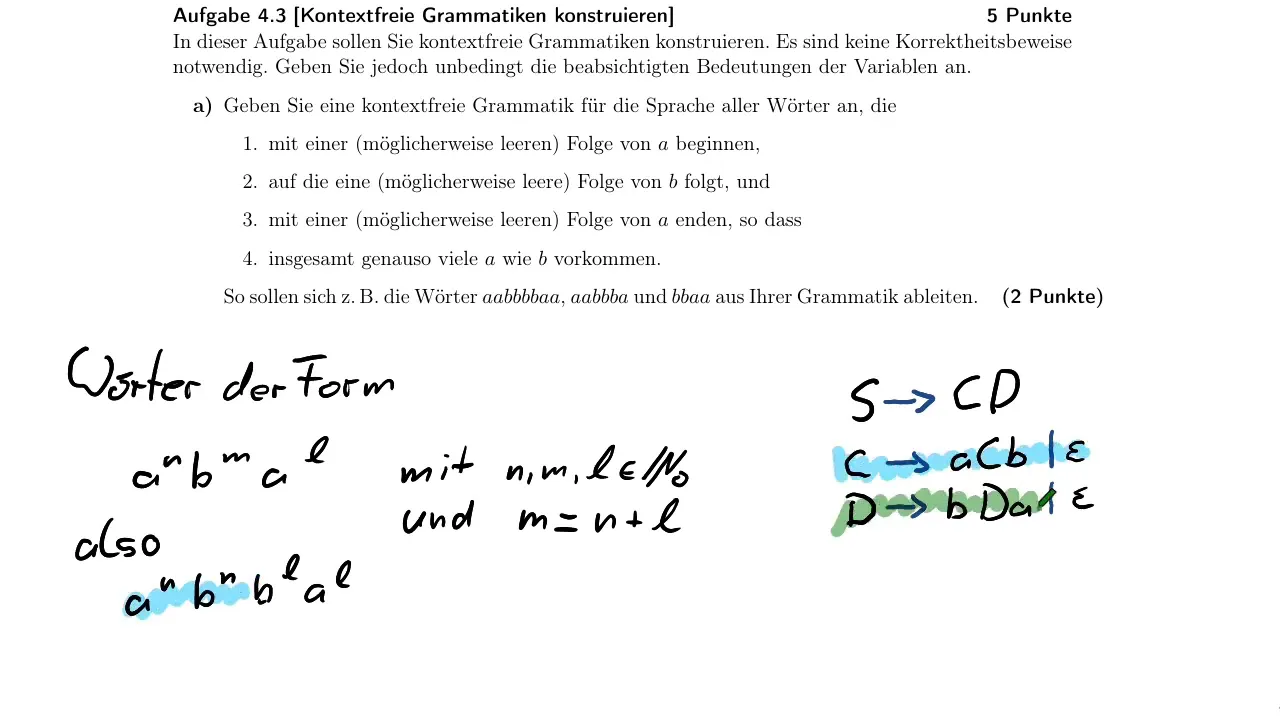 Aufgabe 4.3 [Kontextfreie Grammatiken konstruieren] 5 Punkte
In dieser Aufgabe sollen Sie kontextfreie Grammatiken konstruieren. Es sind keine Korrektheitsbeweise
notwendig. Geben Sie jedoch unbedingt die beabsichtigten Bedeutungen der Variablen an.
a) Geben Sie eine kontextfreie Grammatik für die Sprache aller Wörter an, die
1. mit einer (möglicherweise leeren) Folge von a beginnen,
2. auf die eine (möglicherweise leere) Folge von b folgt, und
3. mit einer (möglicherweise leeren) Folge von a enden, so dass
4. insgesamt genauso viele a wie b vorkommen.
So sollen sich z. B. die Wörter aabbbbaa, aabbba und bbaa aus Ihrer Grammatik ableiten. (2 Punkte)
Wörter der Form
aⁿ bᵐ aˡ mit n, m, l ∈ ℕ₀
und m = n + l
also
aⁿ bⁿ bˡ aˡ
S → CD
C → aCb | ε
D → bDa | ε